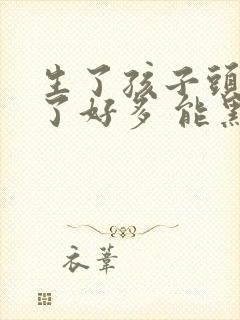 生了孩子頭
了好多 能黑
衣葦